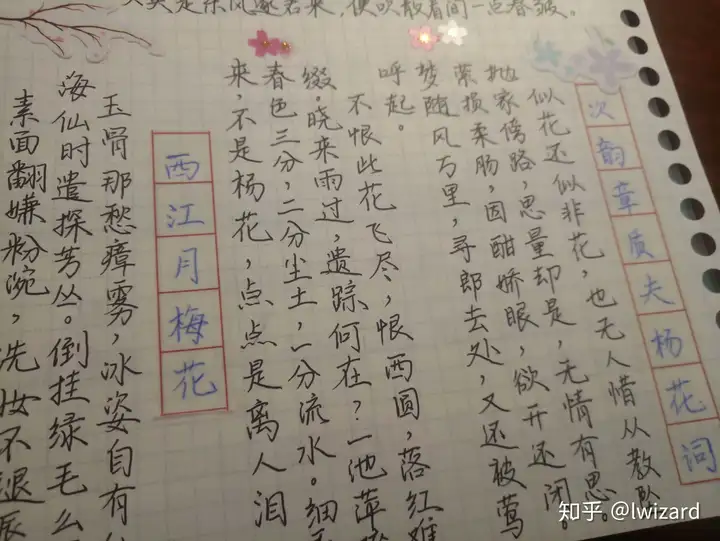 是东风逐君来,便吹散眉间一点春皱。
次韵章质夫杨花词
似花还似非花,也无人惜从教
抛家傍路,思量却是,无情有思。
萦损柔肠,因酣娇眼,欲开还闭。
梦随风万里,寻郎去处,又还被莺
呼起。
不恨此花飞尽,恨西圆,落红难
缀。晓来雨过,遗踪何在?一池萍
春色三分,二分尘土,一分流水。细
来,不是杨花,点点是离人泪
西江月梅花
玉骨那愁瘴雾,冰姿自有
海仙时遣探芳丛。倒挂绿毛么
素面翻嫌粉涴,洗妆不退
知乎 @lwizard